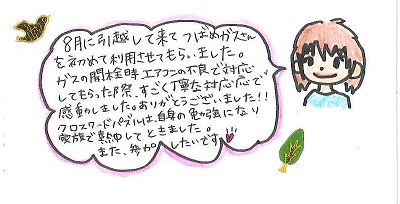 8月に引越して来て つばめガスさん
を初めて利用させてもらいました。
ガスの開栓時、エアコンの不良で対応
してもらった際、すごく丁寧な対応で
感動しました。ありがとうございました!!
クロスワードパズルは、自身の勉強になり
家族で熱中して ときました。
また、参加したいです